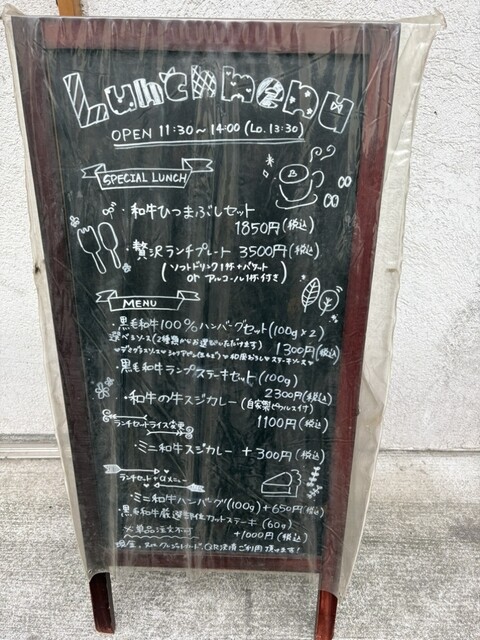 Lunch menu
OPEN 11:30〜14:00 (Lo. 13:30)
SPECIAL LUNCH
・和牛ひつまぶしセット
1850円(税込)
・贅沢ランチプレート 3500円(税込)
(ソフトドリンク1杯+バゲット
or アルコール1杯付き)
MENU
・黒毛和牛100%ハンバーグセット(100g×2)
選べるソース(2種類からお選びいただけます) 1300円(税込)
♥デミグラスソース♥ ♥和風おろし♥ステーキソース♥
・黒毛和牛ランプステーキセット(100g)
2300円(税込)
・和牛の牛スジカレー(自家製ピクルス付)
1100円(税込)
ランチセットライス変更
・ミニ和牛スジカレー +300円(税込)
ランチセット+αメニュー
・ミニ和牛ハンバーグ(100g)+650円(税込)
・黒毛和牛厳選部位カットステーキ(60g)
※単品注文不可 +1000円(税込)
現金、クレジットカード、QR決済ご利用頂けます!